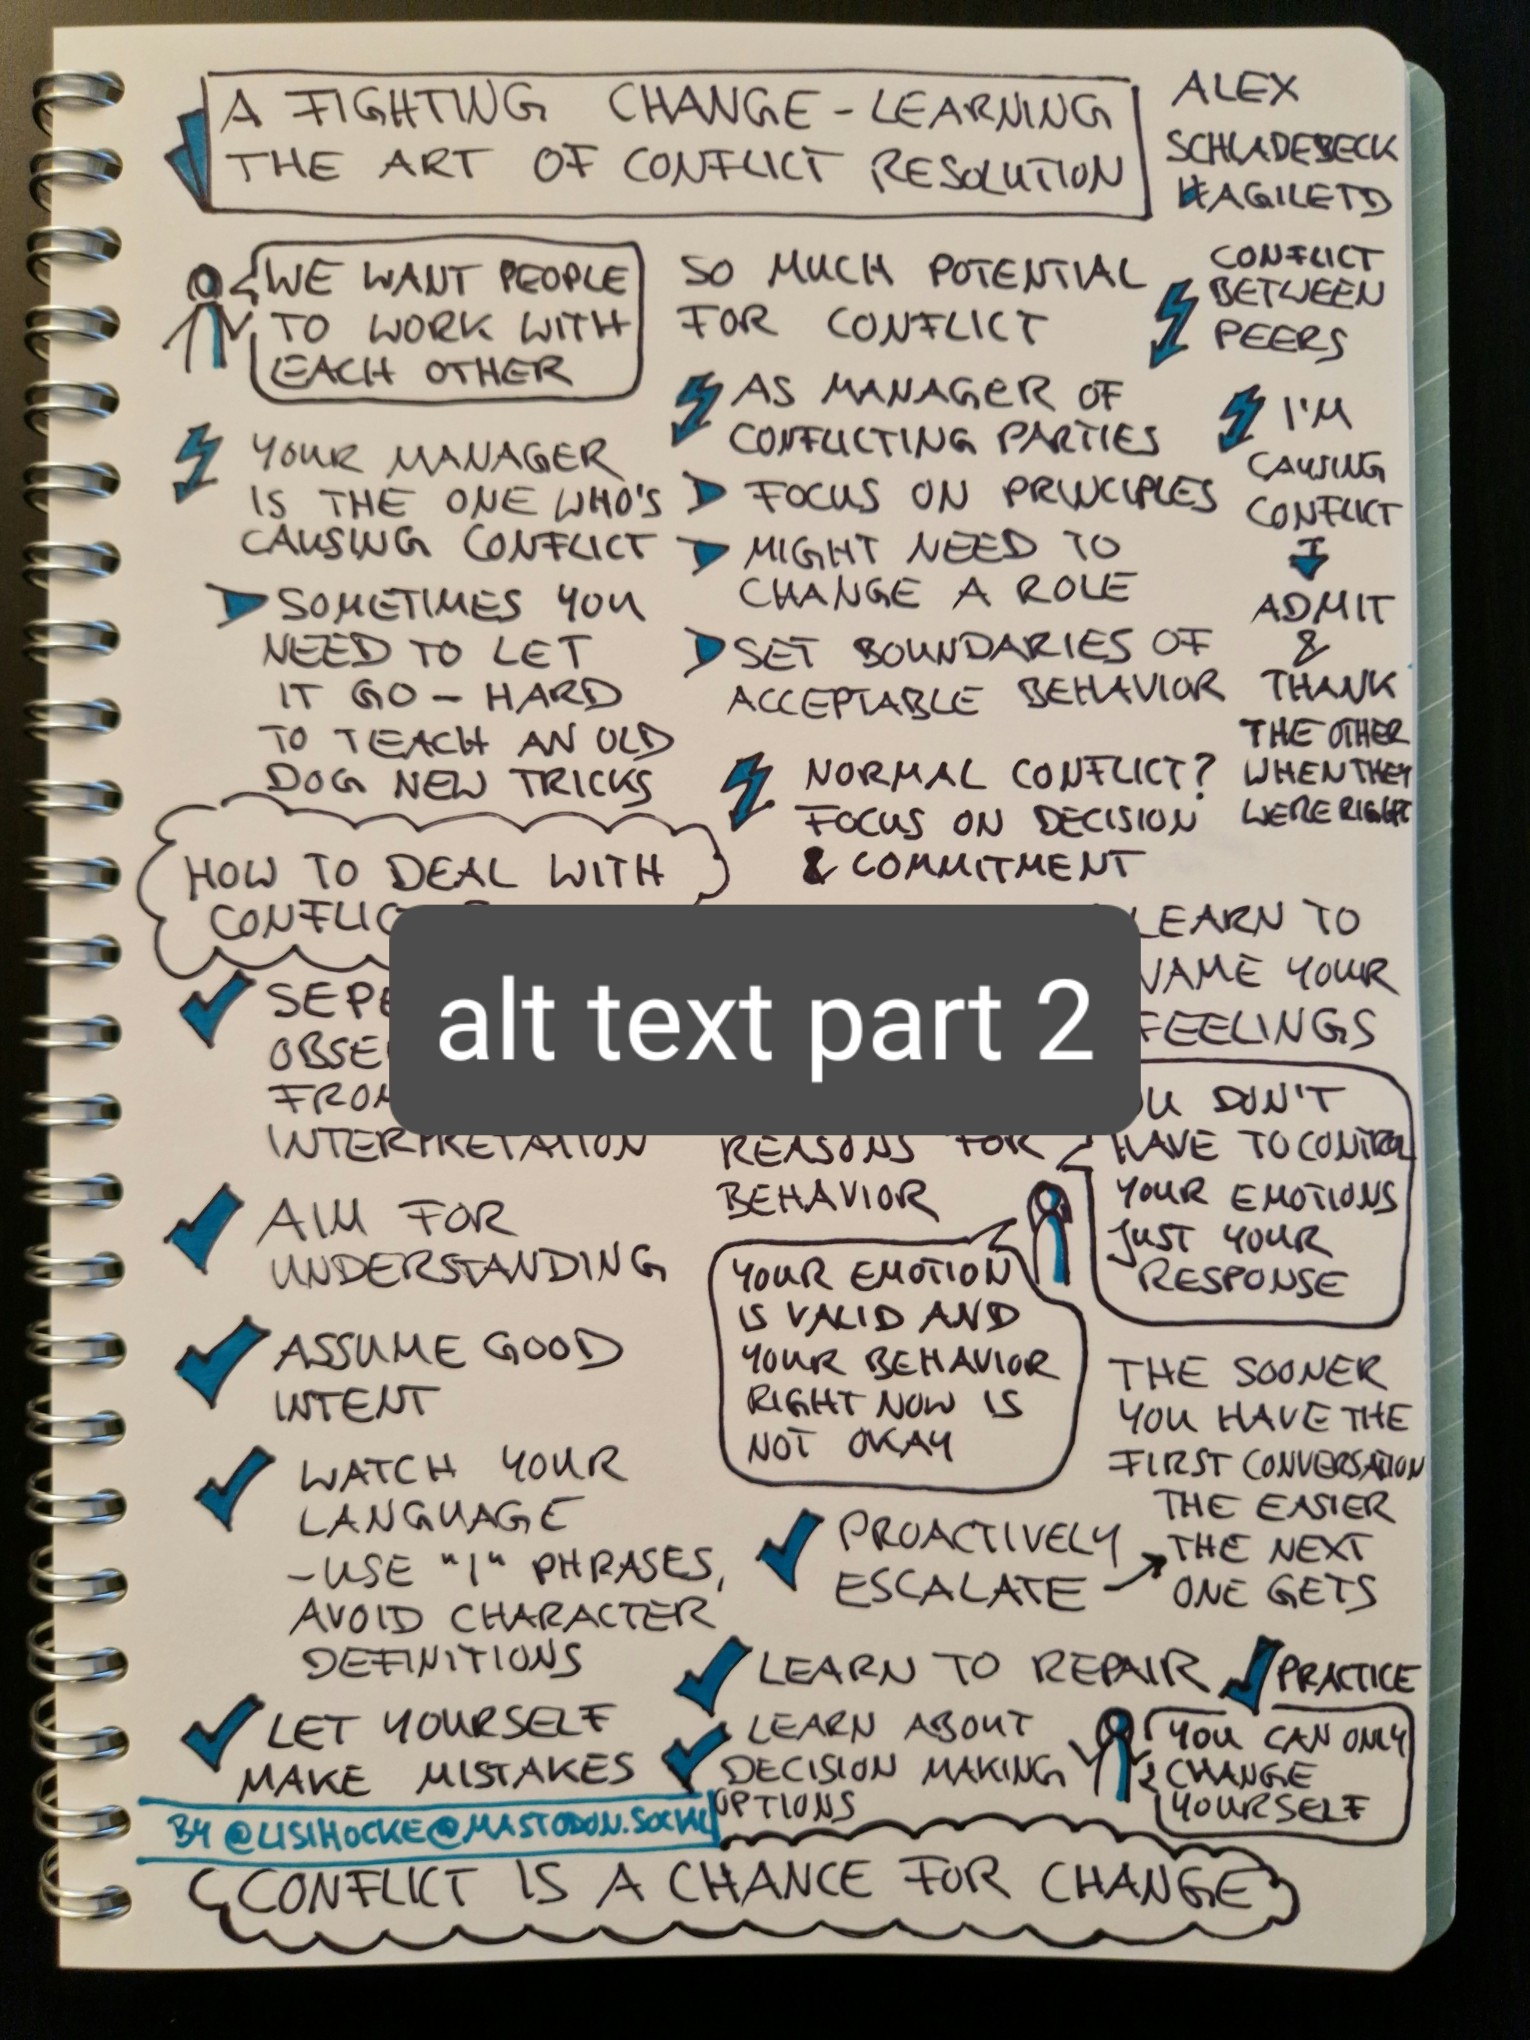 A FIGHTING CHANGE - LEARNING
THE ART OF CONFLICT RESOLUTION
ALEX
SCHLADEBECK
#AGILETD
WE WANT PEOPLE
TO WORK WITH
EACH OTHER
YOUR MANAGER
IS THE ONE WHO'S
CAUSING CONFLICT
SOMETIMES YOU
NEED TO LET
IT GO - HARD
TO TEACH AN OLD
DOG NEW TRICKS
SO MUCH POTENTIAL
FOR CONFLICT
AS MANAGER OF
CONFLICTING PARTIES
FOCUS ON PRINCIPLES
MIGHT NEED TO
CHANGE A ROLE
SET BOUNDARIES OF
ACCEPTABLE BEHAVIOR
NORMAL CONFLICT?
FOCUS ON DECISION
& COMMITMENT
CONFLICT
BETWEEN
PEERS
I'M
CAUSING
CONFLICT
ADMIT
&
THANK
THE OTHER
WHEN THEY
WERE RIGHT
HOW TO DEAL WITH
alt text part 2
INTERPRETATION
AIM FOR
UNDERSTANDING
ASSUME GOOD
INTENT
WATCH YOUR
LANGUAGE
- USE "I" PHRASES,
AVOID CHARACTER
DEFINITIONS
LET YOURSELF
MAKE MISTAKES
REASONS FOR
BEHAVIOR
YOUR EMOTION
IS VALID AND
YOUR BEHAVIOR
RIGHT NOW IS
NOT OKAY
PROACTIVELY
ESCALATE
LEARN TO REPAIR
LEARN ABOUT
DECISION MAKING
OPTIONS
LEARN TO
NAME YOUR
FEELINGS
DON'T
HAVE TO CONTROL
YOUR EMOTIONS
JUST YOUR
RESPONSE
THE SOONER
YOU HAVE THE
FIRST CONVERSATION
THE EASIER
THE NEXT
ONE GETS
PRACTICE
YOU CAN ONLY
CHANGE
YOURSELF
BY @LISIHOCKE@MASTODON.SOCIAL
CONFLICT IS A CHANCE FOR CHANGE